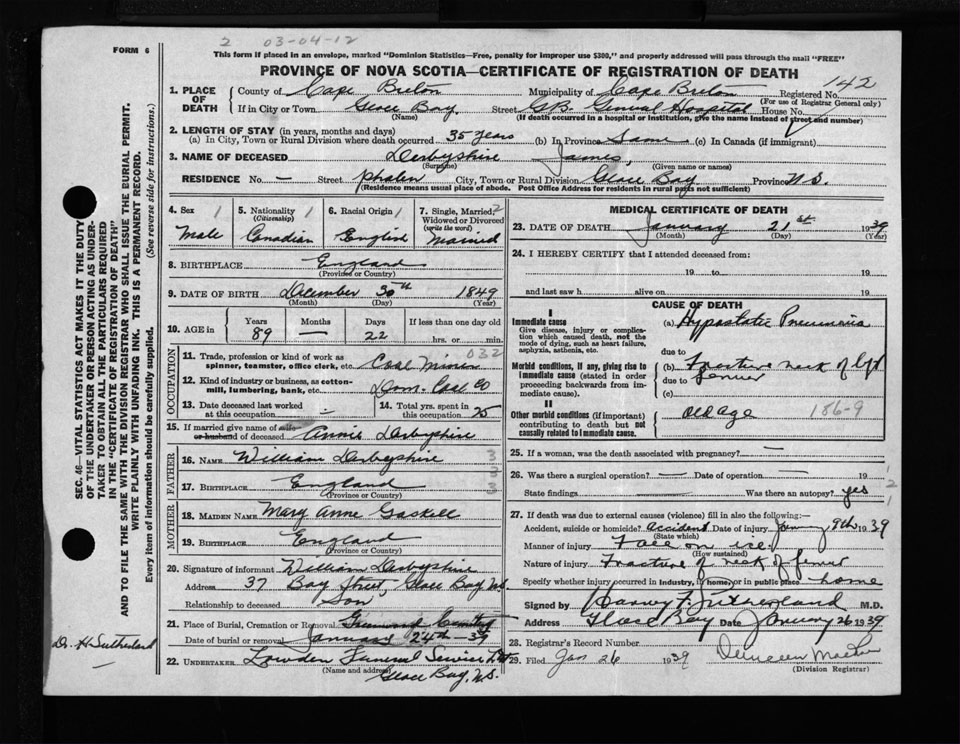 FORM 6
2 03-04-12
This form if placed in an envelope, marked "Dominion Statistics—Free, penalty for improper use $300," and properly addressed will pass through the mail "FREE"
PROVINCE OF NOVA SCOTIA—CERTIFICATE OF REGISTRATION OF DEATH
142
1. PLACE OF DEATH County of Cape Breton Municipality of Cape Breton Registered No.
(For use of Registrar General only)
If in City or Town Glace Bay Street G.B. General Hospital House No.
(Name) (If death occurred in a hospital or institution, give the name instead of street and number)
2. LENGTH OF STAY (in years, months and days)
(a) In City, Town or Rural Division where death occurred 35 years (b) In Province Same (c) In Canada (if immigrant)
3. NAME OF DECEASED Derbyshire James,
(Surname) (Given name or names)
RESIDENCE No. — Street Phalen City, Town or Rural Division Glace Bay Province N.S.
(Residence means usual place of abode. Post Office Address for residents in rural parts not sufficient)
4. Sex 1 Male
5. Nationality 1 (Citizenship) Canadian
6. Racial Origin 1 English
7. Single, Married, 2 Widowed or Divorced (write the word) Married
8. BIRTHPLACE England
(Province or Country)
9. DATE OF BIRTH December 30th 1849
(Month) (Day) (Year)
10. AGE in Years 89 Months — Days 22 If less than one day old hrs. or min.
OCCUPATION
11. Trade, profession or kind of work as spinner, teamster, office clerk, etc. Coal 032
12. Kind of industry or business, as cotton-mill, lumbering, bank, etc. Dom. Coal Co
13. Date deceased last worked at this occupation —
14. Total yrs. spent in this occupation 25
15. If married give name of wife or husband of deceased Annie Derbyshire
FATHER
16. NAME William Derbyshire 3
3
17. BIRTHPLACE England 3
(Province or Country)
MOTHER
18. MAIDEN NAME Mary Anne Gaskell
19. BIRTHPLACE England
(Province or Country)
20. Signature of informant William Derbyshire
Address 37 Bay Street, Glace Bay, N.S.
Relationship to deceased Son
21. Place of Burial, Cremation or Removal Greenwood Cemetery
Date of burial or removal January 24th-39
22. UNDERTAKER Lowden Funeral Service
(Name and address) Glace Bay, N.S.
MEDICAL CERTIFICATE OF DEATH
23. DATE OF DEATH January 21st 1939
(Month) (Day) (Year)
24. I HEREBY CERTIFY that I attended deceased from:
19 to 19
and last saw h alive on 19
CAUSE OF DEATH
I
Immediate cause
Give disease, injury or complication which caused death, not the mode of dying, such as heart failure, asphyxia, asthenia, etc.
(a) Hypostatic Pneumonia
due to
Morbid conditions, if any, giving rise to immediate cause (stated in order proceeding backwards from immediate cause).
(b) Fracture neck of left
due to femur
(c)
II
Other morbid conditions (if important) contributing to death but not causally related to immediate cause.
Old age 186-9
25. If a woman, was the death associated with pregnancy? —
26. Was there a surgical operation? — Date of operation — 19 1
2
State findings Was there an autopsy? yes 1
27. If death was due to external causes (violence) fill in also the following:—
Accident, suicide or homicide? Accident Date of injury January 9th 1939
(State which)
Manner of injury Fall on ice
(How sustained)
Nature of injury Fracture of neck of femur
Specify whether injury occurred in industry, in home, or in public place home
Signed by Harvey F. Sutherland M.D.
Address Glace Bay Date January 26 1939
28. Registrar's Record Number
29. Filed Jan 26 1939
(Division Registrar)
SEC. 46—VITAL STATISTICS ACT MAKES IT THE DUTY
OF THE UNDERTAKER OR PERSON ACTING AS UNDER-
TAKER TO OBTAIN ALL THE PARTICULARS REQUIRED
IN THE "CERTIFICATE OF REGISTRATION OF DEATH"
AND TO FILE THE SAME WITH THE DIVISION REGISTRAR WHO SHALL ISSUE THE BURIAL PERMIT.
WRITE PLAINLY WITH UNFADING INK. THIS IS A PERMANENT RECORD.
Every item of information should be carefully supplied. (See reverse side for instructions.)
Dr. H. Sutherland